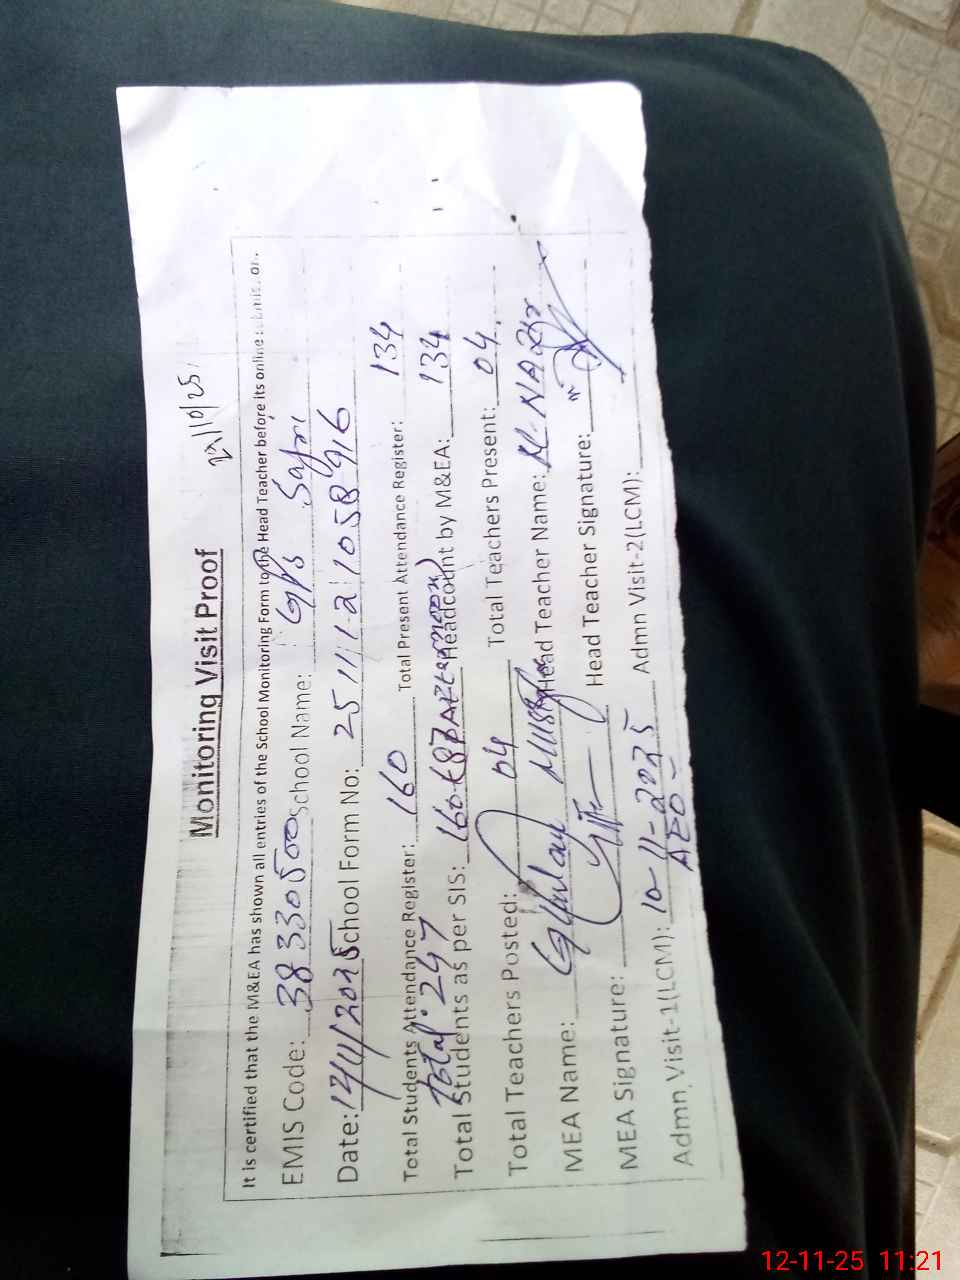 Monitoring Visit Proof
/10/25
It is certified that the M&EA has shown all entries of the School Monitoring Form to the Head Teacher before its online
EMIS Code: 38330500 School Name: GPS
Date: /11/2025 School Form No: 25 11 12 1058916
Total Students Attendance Register: 160 Total Present Attendance Register: 134
Total: 247
Total Students as per SIS: 160+87 Afternoon) Headcount by M&EA: 134
Total Teachers Posted: 04 Total Teachers Present: 04
MEA Name: Ghulam Head Teacher Name:
MEA Signature: Head Teacher Signature:
Admn, Visit-1(LCM): 10-11-2025 Admn Visit-2(LCM):
AEO
12-11-25 11:21